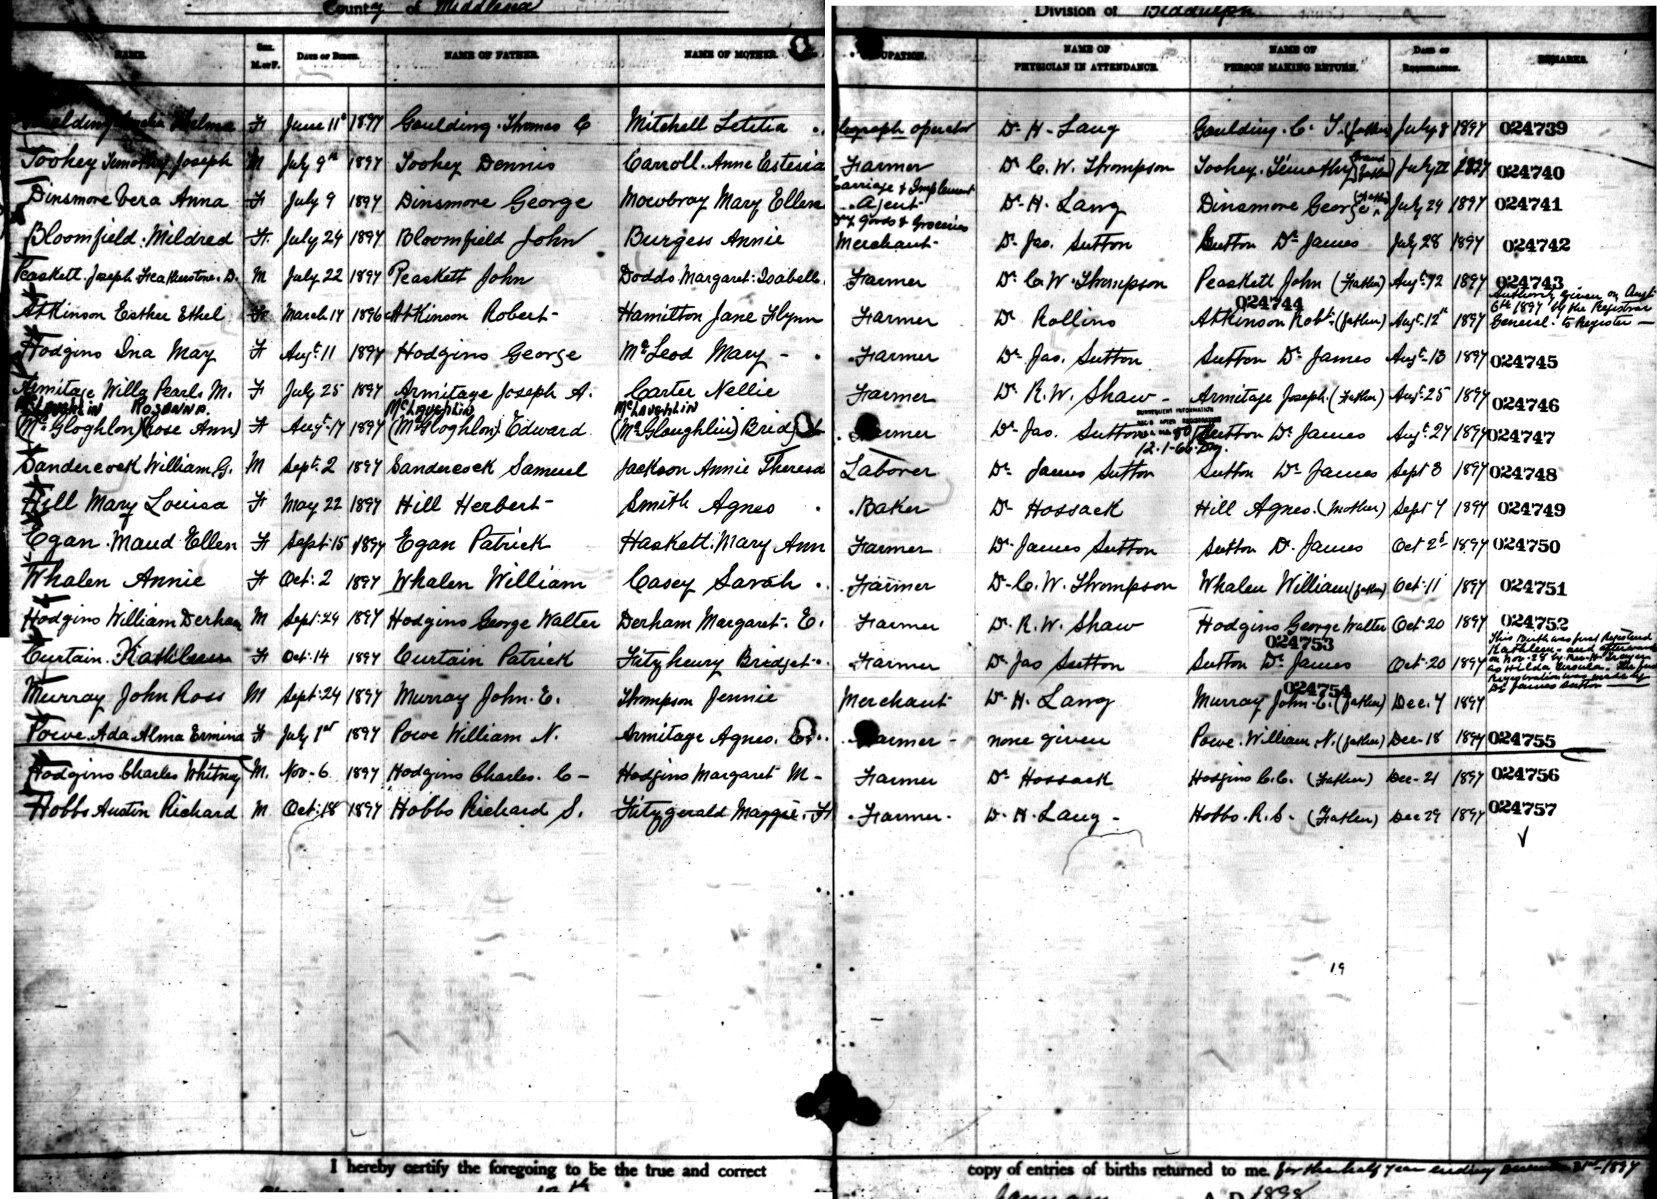 County of Middlesex Division of Biddulph
NAME. SEX. M. or F. DATE OF BIRTH. NAME OF FATHER. NAME OF MOTHER. OCCUPATION. NAME OF PHYSICIAN IN ATTENDANCE. NAME OF PERSON MAKING RETURN. DATE OF REGISTRATION. REMARKS.
Goulding Thelma F June 11th 1897 Goulding Thomas C Mitchell Letitia operator Dr H. Lang Goulding C. T. (father) July 8 1897 024739
Toohey Timothy Joseph M July 9th 1897 Toohey Dennis Carroll Anne Farmer Dr C. W. Thompson Toohey Timothy (Grand father) July 1897 024740
Dinsmore Vera Anna F July 9 1897 Dinsmore George Mowbray Mary Ellen Carriage & Implement Agent Dr H. Lang Dinsmore George (Father) July 29 1897 024741
Bloomfield Mildred F. July 24 1897 Bloomfield John Burgess Annie Dry Goods & Groceries Merchant Dr Jas. Sutton Sutton Dr James July 28 1897 024742
Peaskett Joseph D. M July 22 1897 Peaskett John Dodds Margaret Isabella Farmer Dr C. W. Thompson Peaskett John (Father) Augt 1897 024743
Atkinson Esther Ethel F March 17 1896 Atkinson Robert Hamilton Jane Flynn Farmer Dr Rollins Atkinson Robt. (father) Augt 12th 1897 024744 Authority given on Augt 6th 1897 by the Registrar General to Register
Hodgins Ina May F Augt 11 1897 Hodgins George McLeod Mary Farmer Dr Jas. Sutton Sutton Dr James Augt 13 1897 024745
Armitage Willa Pearl M. F July 25 1897 Armitage Joseph A. Carter Nellie Farmer Dr R. W. Shaw Armitage Joseph (Father) Augt 25 1897 024746
McLaughlin ROSANNA McLaughlin McLaughlin
(McGloghlon) (Rose Ann) F Augt 17 1897 (McGloghlon) Edward (McGloughlin) Bridget Farmer Dr Jas. Sutton Sutton Dr James Augt 27 1897 024747
12-1-66
Sandercock William G. M Sept. 2 1897 Sandercock Samuel Jackson Annie Theresa Laborer Dr James Sutton Sutton Dr James Sept 3 1897 024748
Hill Mary Louisa F May 22 1897 Hill Herbert Smith Agnes Baker Dr Hossack Hill Agnes (Mother) Sept 7 1897 024749
Egan Maud Ellen F Sept. 15 1897 Egan Patrick Haskett Mary Ann Farmer Dr James Sutton Sutton Dr James Oct 2 1897 024750
Whalen Annie F Oct. 2 1897 Whalen William Casey Sarah Farmer Dr C. W. Thompson Whalen William (father) Oct 11 1897 024751
Hodgins William Derham M Sept. 24 1897 Hodgins George Walter Derham Margaret E. Farmer Dr R. W. Shaw Hodgins George Walter Oct 20 1897 024752
Curtain Kathleen F Oct. 14 1897 Curtain Patrick Fitzhenry Bridget Farmer Dr Jas Sutton Sutton Dr James Oct 20 1897 024753 This Birth was first Registered Kathleen and afterwards on Nov. 28 by as Hilda Ursula. The first Registration was made by Dr James Sutton
Murray John Ross M Sept. 24 1897 Murray John E. Thompson Jennie Merchant Dr H. Lang Murray John E. (father) Dec. 7 1897 024754
Powe Ada Alma Ermina F July 1st 1897 Powe William N. Armitage Agnes Farmer none given Powe William N. (father) Dec 18 1897 024755
Hodgins Charles Whitney M. Nov. 6 1897 Hodgins Charles C Hodgins Margaret M Farmer Dr Hossack Hodgins C. C. (Father) Dec 21 1897 024756
Hobbs Austin Richard M Oct. 18 1897 Hobbs Richard S. Fitzgerald Maggie Farmer Dr H. Lang Hobbs R. S. (Father) Dec 29 1897 024757
19
I hereby certify the foregoing to be the true and correct copy of entries of births returned to me. for the half year ending December 31st 1897
12th January A.D. 1898